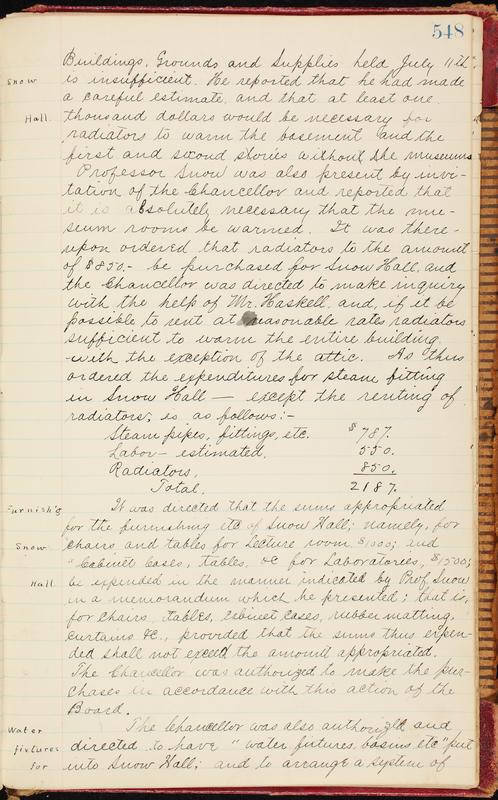 548
Buildings, Grounds and Supplies held July 11th,
Snow
is insufficient. He reported that he had made
a careful estimate, and that at least one
Hall.
thousand dollars would be necessary for
radiators to warm the basement and the
first and second stories without the museums
Professor Snow was also present by invi-
tation of the Chancellor and reported that
it is absolutely necessary that the mu-
seum rooms be warmed. It was there-
upon ordered that radiators to the amount
of $850.- be purchased for Snow Hall, and
the Chancellor was directed to make inquiry
with the help of Mr. Haskell, and, if it be
possible to rent at reasonable rates radiators
sufficient to warm the entire building
-with the exception of the attic. As thus
ordered the expenditures for steam fitting
in Snow Hall — except the renting of
radiators, is as follows:-
Steam pipes, fittings, etc. $787.
Labor - estimated, 550.
Radiators, 850.
Total. 2187.
Furnish'g
It was directed that the sums appropriated
for the furnishing etc of Snow Hall; namely, for
Snow
chairs and tables for Lecture room $1000; and
"Cabinet Cases, tables, &c for Laboratories, $1500;
Hall
be expended in the manner indicated by Prof. Snow
in a memorandum which he presented; that is,
for chairs, tables, cabinet cases, rubber matting,
curtains &c., provided that the sums thus expen-
ded shall not exceed the amount appropriated.
The Chancellor was authorized to make the pur-
chases in accordance with this action of the
Board.
Water
The Chancellor was also authorized and
fixtures
directed to have "water fixtures, basins etc" put
for
into Snow Hall; and to arrange a system of